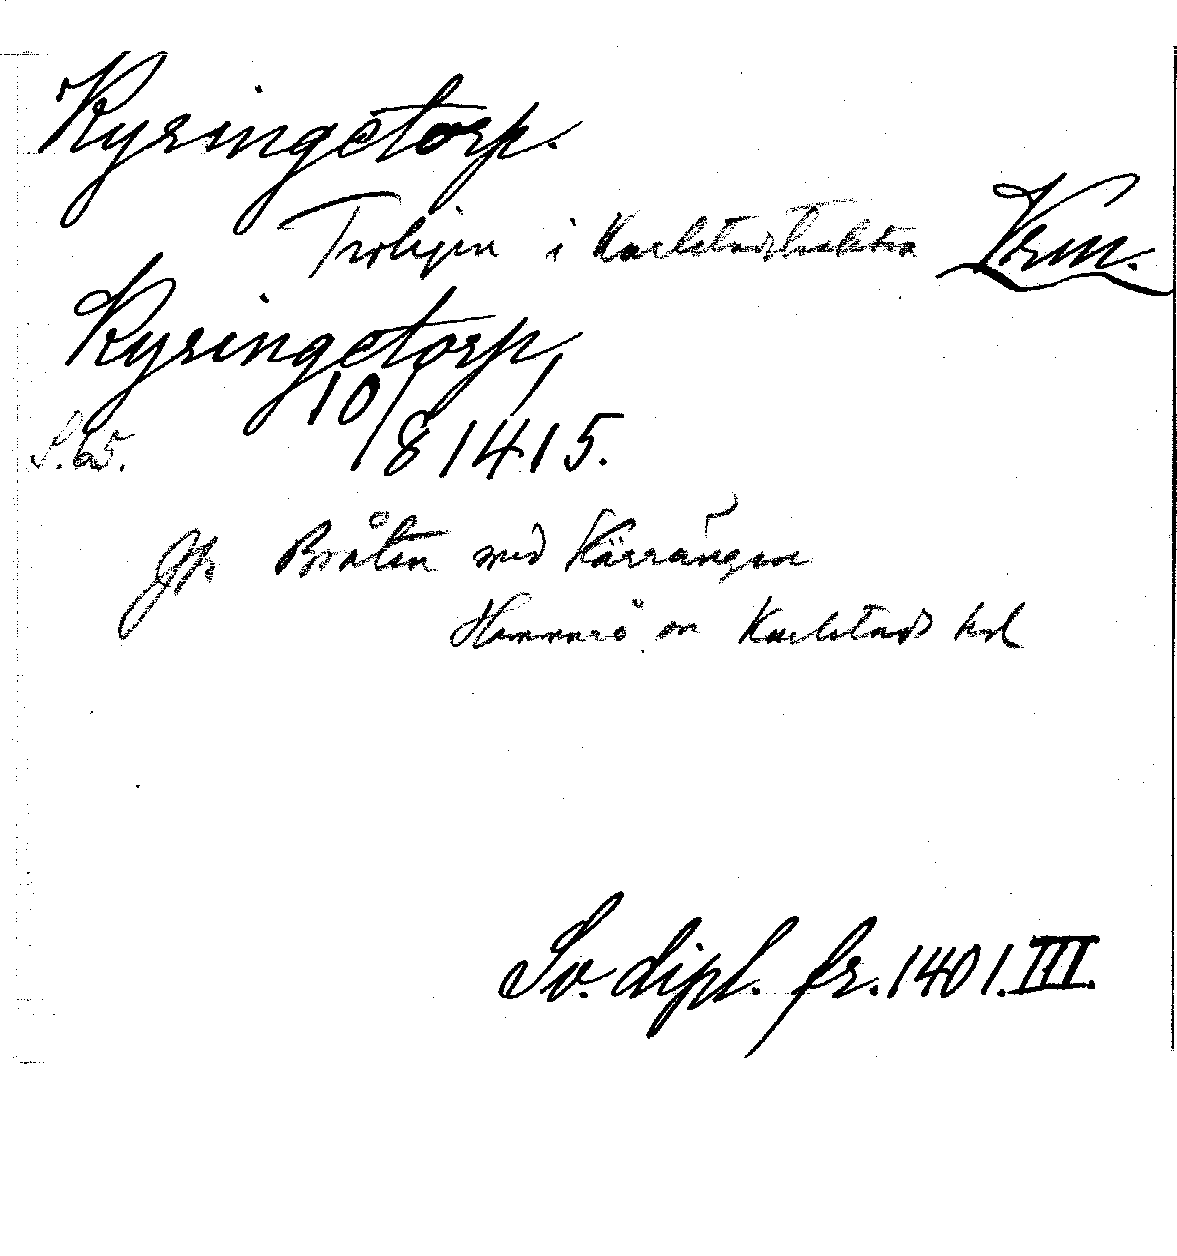 Kyringetorp.
Troligen i Karlstadstrakten Vrm.
Kyringetorp,
10/8 1415.
S. 65.
Jfr Bråten med Kärrängen
Hammarö sn Karlstads hd
Sv. dipl. fr. 1401. III.